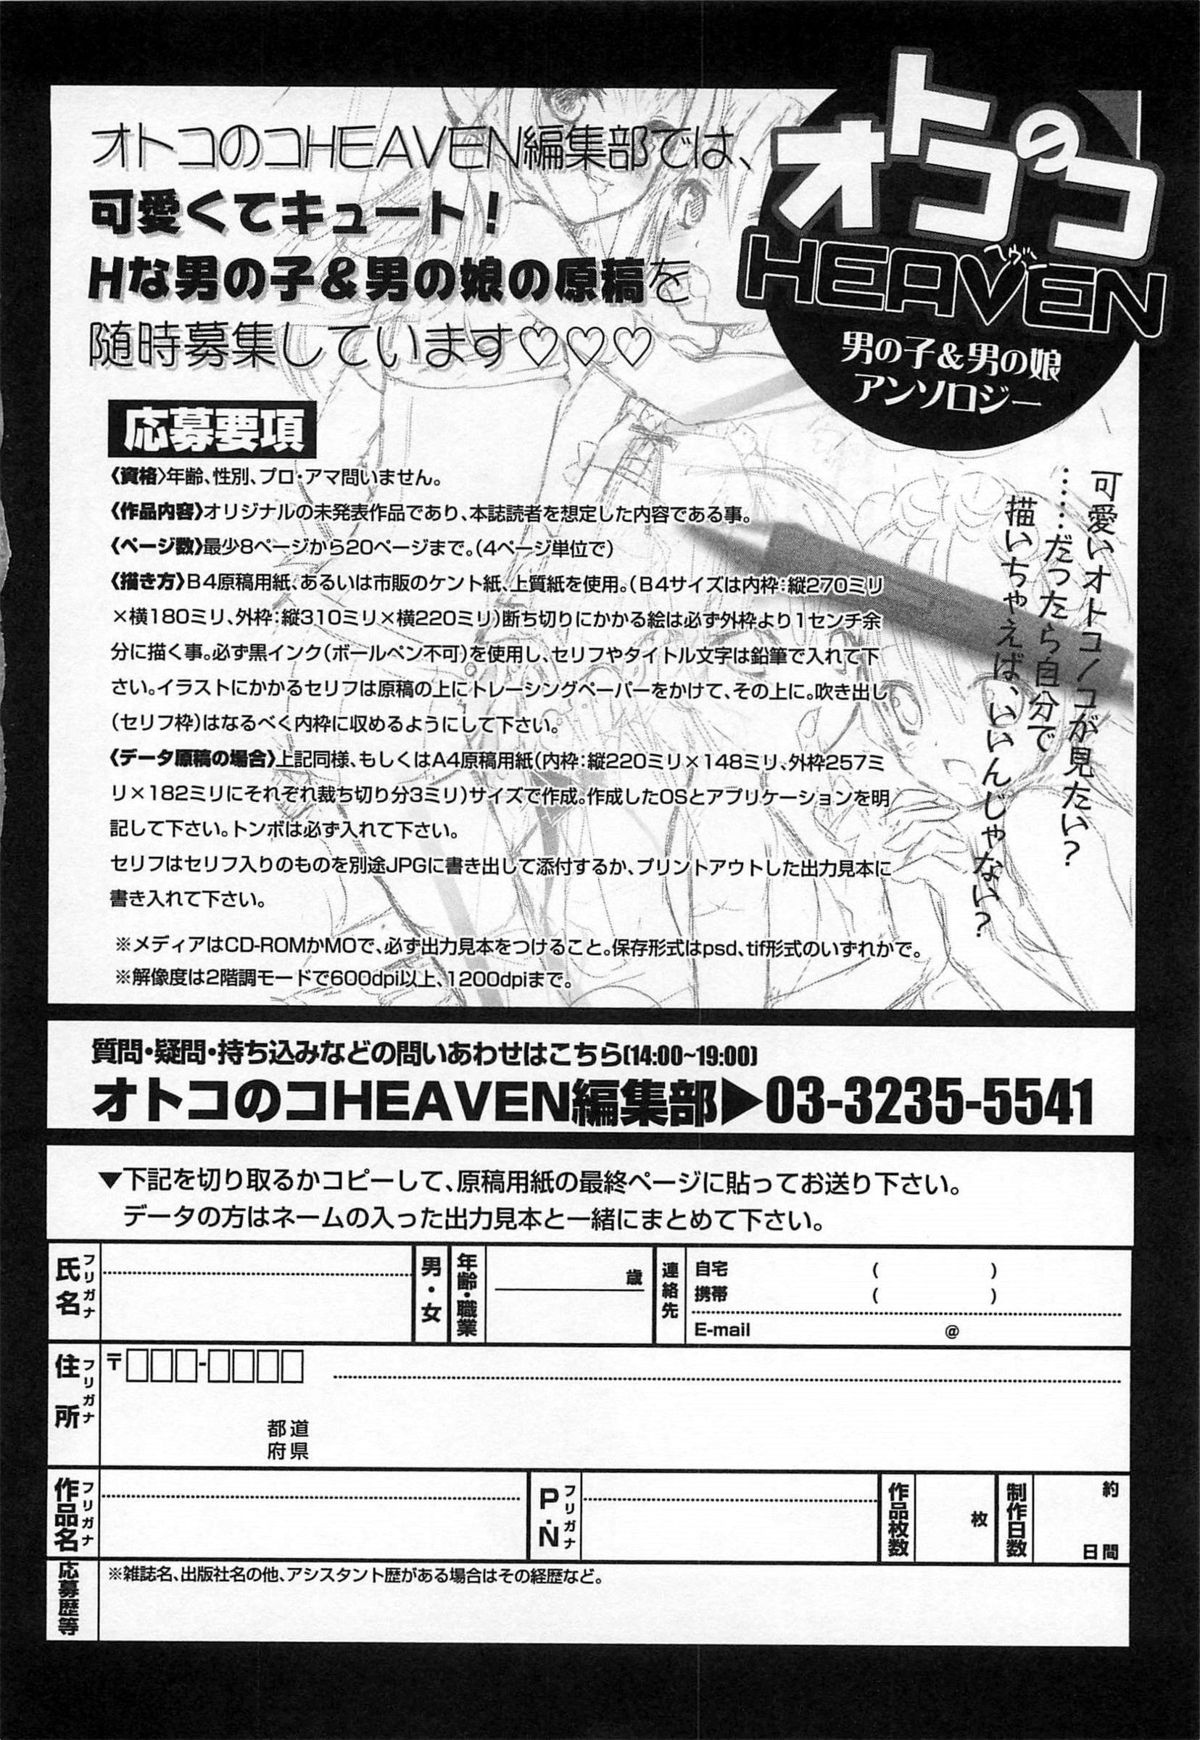 オトコのコHEAVEN編集部では、
可愛くてキュート！
Hな男の子＆男の娘の原稿を
随時募集しています♡♡♡
オトコのコ
HEAVEN
ヘヴン
男の子＆男の娘
アンソロジー
可愛いオトコノコが見たい？
……だったら自分で
描いちゃえば、いいんじゃない？
応募要項
〈資格〉年齢、性別、プロ・アマ問いません。
〈作品内容〉オリジナルの未発表作品であり、本誌読者を想定した内容である事。
〈ページ数〉最少8ページから20ページまで。(4ページ単位で)
〈描き方〉B4原稿用紙、あるいは市販のケント紙、上質紙を使用。(B4サイズは内枠：縦270ミリ
×横180ミリ、外枠：縦310ミリ×横220ミリ)断ち切りにかかる絵は必ず外枠より1センチ余
分に描く事。必ず黒インク(ボールペン不可)を使用し、セリフやタイトル文字は鉛筆で入れて下
さい。イラストにかかるセリフは原稿の上にトレーシングペーパーをかけて、その上に。吹き出し
(セリフ枠)はなるべく内枠に収めるようにして下さい。
〈データ原稿の場合〉上記同様、もしくはA4原稿用紙(内枠：縦220ミリ×148ミリ、外枠257ミ
リ×182ミリにそれぞれ裁ち切り分3ミリ)サイズで作成。作成したOSとアプリケーションを明
記して下さい。トンボは必ず入れて下さい。
セリフはセリフ入りのものを別途JPGに書き出して添付するか、プリントアウトした出力見本に
書き入れて下さい。
※メディアはCD-ROMかMOで、必ず出力見本をつけること。保存形式はpsd、tif形式のいずれかで。
※解像度は2階調モードで600dpi以上、1200dpiまで。
質問・疑問・持ち込みなどの問いあわせはこちら(14:00~19:00)
オトコのコHEAVEN編集部▶03-3235-5541
▼下記を切り取るかコピーして、原稿用紙の最終ページに貼ってお送り下さい。
データの方はネームの入った出力見本と一緒にまとめて下さい。
氏名 フリガナ
男・女
年齢・職業
歳
連絡先
自宅 ( )
携帯 ( )
E-mail @
住所 フリガナ
〒□□□-□□□□
都道
府県
作品名 フリガナ
P・N フリガナ
作品枚数
枚
制作日数
約
日間
応募歴等
※雑誌名、出版社名の他、アシスタント歴がある場合はその経歴など。